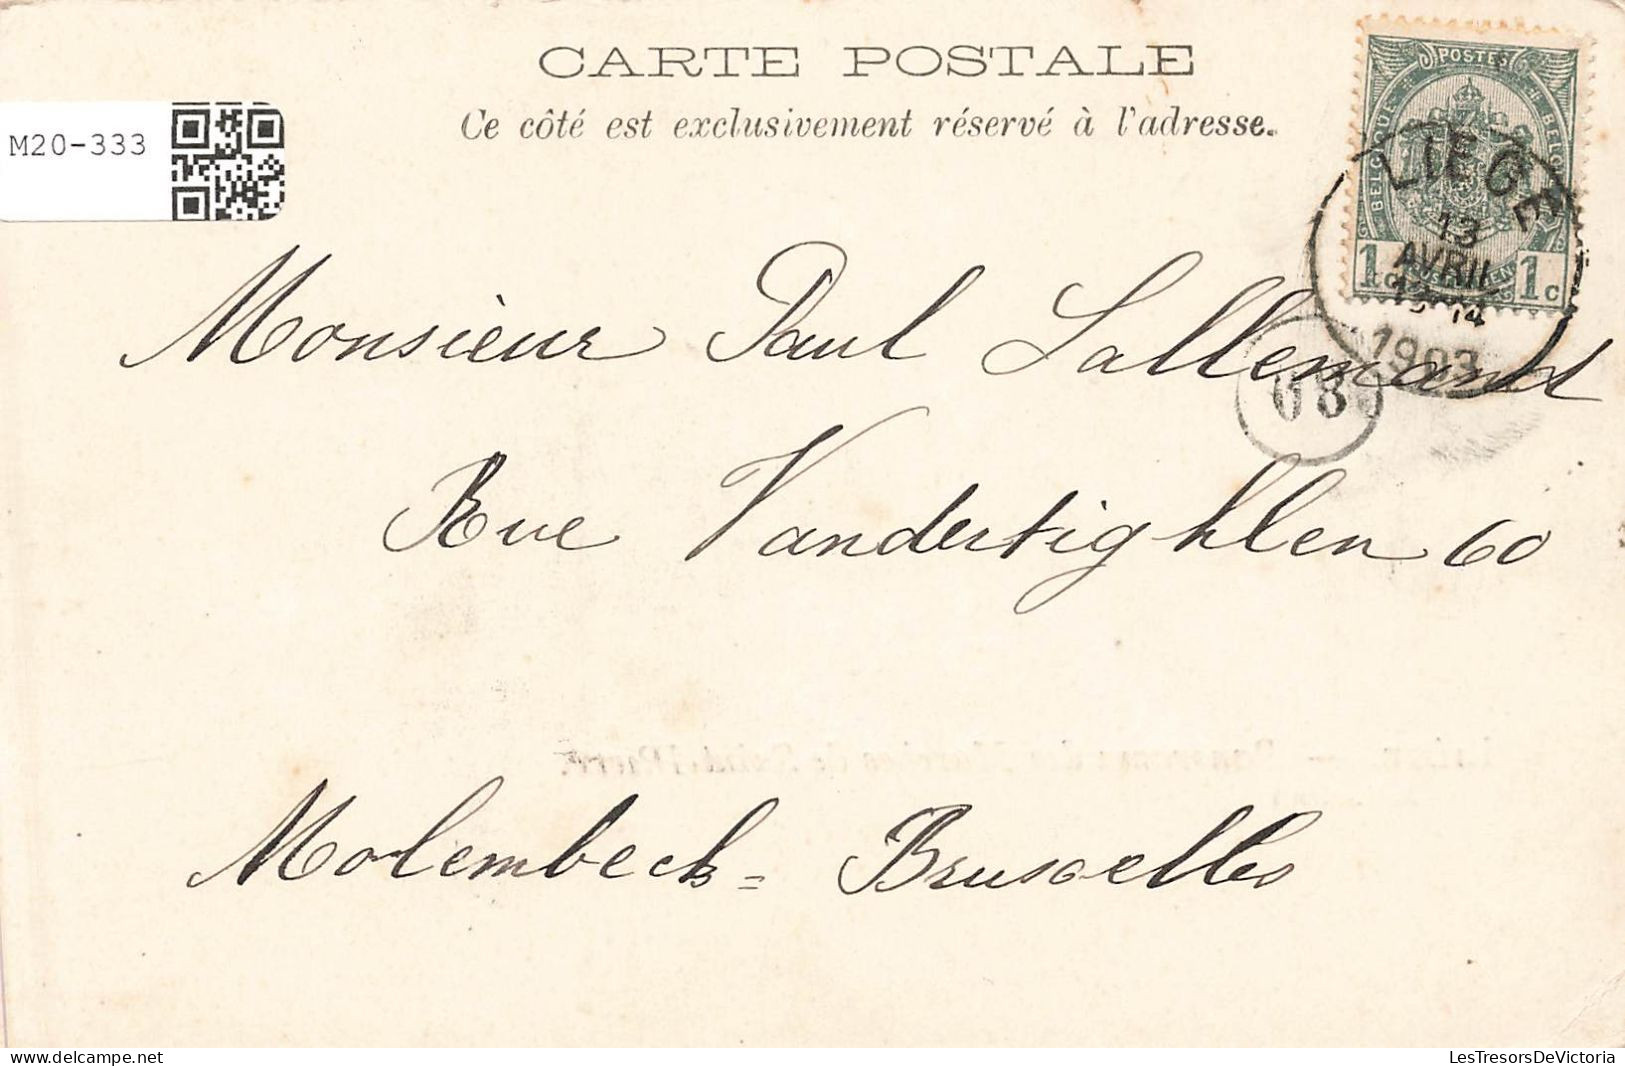 CARTE POSTALE
Ce côté est exclusivement réservé à l'adresse.
M20-333
POSTES
BELGIQUE
BELGIË
1c 1c
LIEGE
13
AVRIL
1903
Monsieur Paul Lallemand
Rue Vandertighlen 60
Molembeck = Bruxelles
www.delcampe.net
LesTresorsDeVictoria